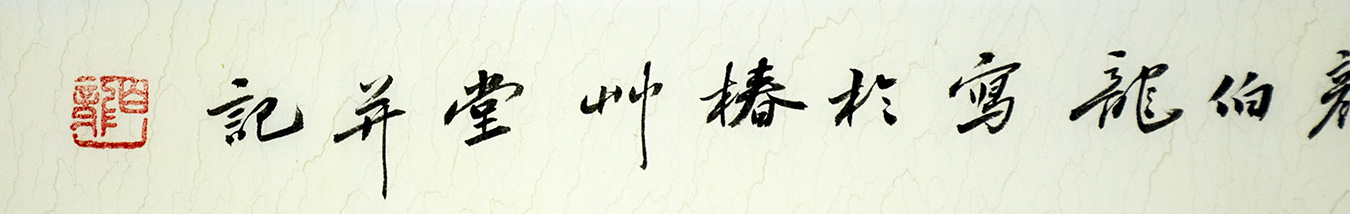 顏伯龍寫於椿艸堂并記
伯龍